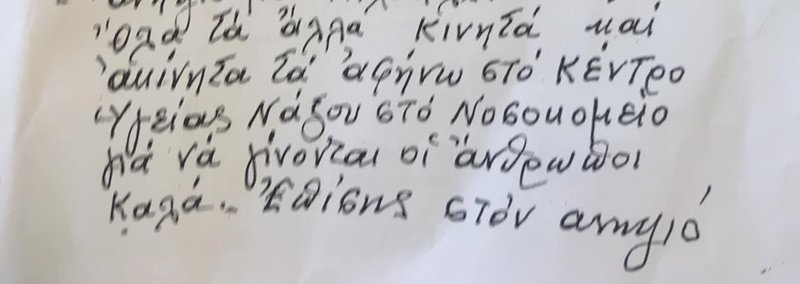 Ὅλα τά ἄλλα κινητά καί
ἀκίνητα τά ἀφήνω στό κέντρο
Ὑγείας Νάξου στό Νοσοκομείο
γιά νά γίνονται οἱ ἄνθρωποι
καλά.. Ἐπίσης στόν ανηψιό